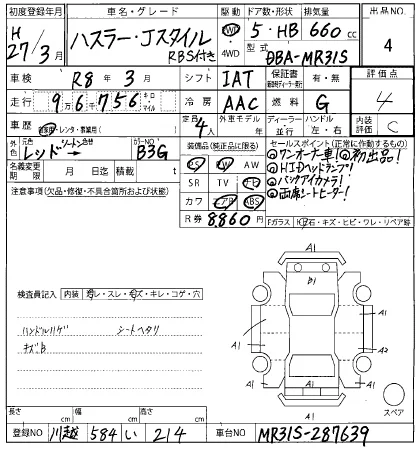 初度登録年月 車名・グレード 駆動 ドア数・形状 排気量 出品NO
H27/3月 ハスラー・Jスタイル RBS付き 2WD・4WD 5・HB 660cc 4
型式 DBA-MR31S
車検 R8年3月 シフト IAT 保証書 有・無 評価点 4
走行 96,756 キロ・マイル 冷房 AAC 燃料 G
車歴 自家用・レンタ・事業用( ) 定員 4人 外車モデル ディーラー・並行 ハンドル 左・右 内装評価 C
外色 元色 レッド→ ツートン 色替 カラーNO B3G
名義変更期限 月 日 積載 t
装備品(純正品に限る)
PS PW AW
SR TV ナビ
カワ エアB ABS
R券 8,860円
セールスポイント(正常に作動するもの)
◎ワンオーナー車!◎初出品!
◎HIDヘッドランプ!
◎バックアイカメラ!
◎両席シートヒーター!
注意事項(欠品・修復・不具合箇所および状態)
Fガラス 飛石・キズ・ヒビ・ワレ・リペア跡
検査員記入 内装 汚レ・スレ・キズ・キレ・コゲ・穴
ハンドルハゲ シートヘタリ
キズB
A1
B1
A1
A1
A1
A2
A1
A1
スペア
長さ cm 幅 cm 高さ cm
登録NO 川越 584 い 214 車台NO MR31S-287639